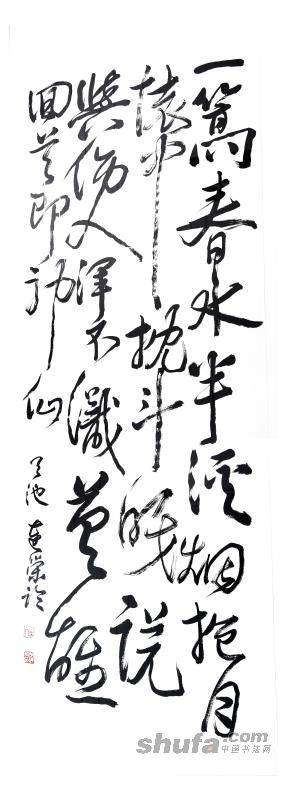 一篙春水半溪烟抱月
懷中枕斗眠説
與傍人渾不識英雄
回首即神仙
shufa.com
中国书法网